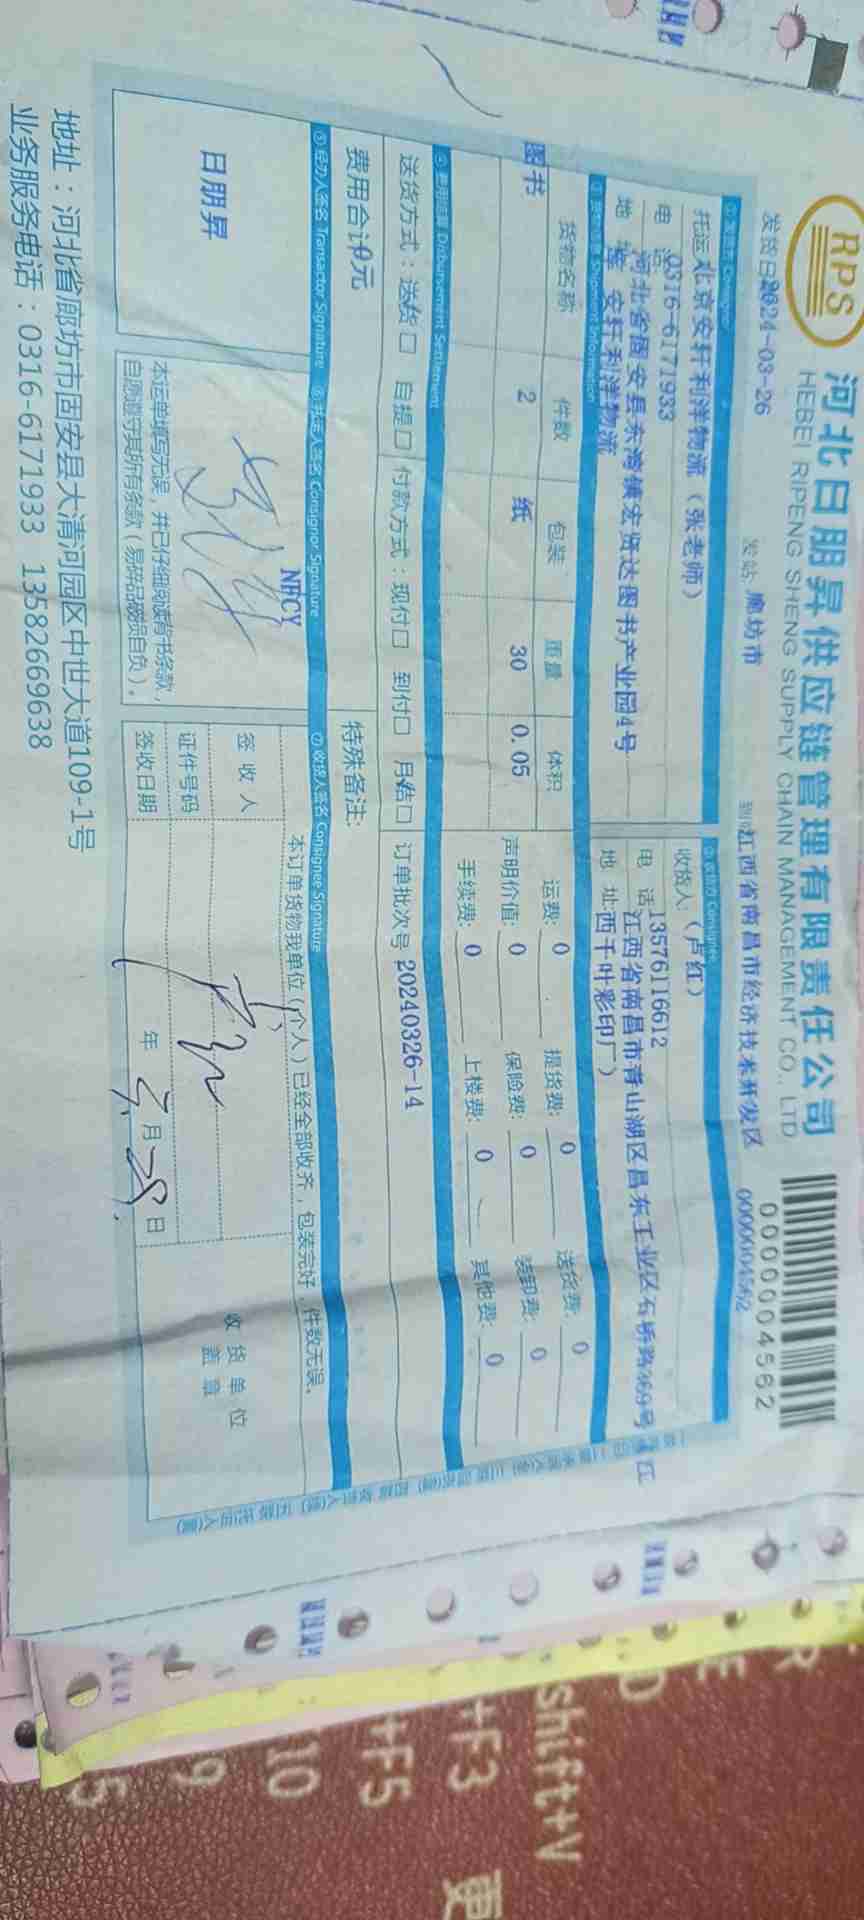 RPS
河北日朋昇供应链管理有限责任公司
HEBEI RIPENG SHENG SUPPLY CHAIN MANAGEMENT CO., LTD
0000004562
发货日 2024-03-26 发站 廊坊市 到 江西省南昌市经济技术开发区 0000004562
① 发货方 Consignor ② 收货方 Consignee
托运 北京安轩利洋物流（张老师） 收货人:（卢红）
电 话 0316-6171933 电 话 13576116612
地 河北省固安县东湾镇宏贤达图书产业园4号 地 址: 江西省南昌市青山湖区昌东工业区东桥路369号 江
安轩利洋物流 西千叶彩印厂）
Shipment Information
货物名称 件数 包装 重量 体积 运费: 0 提货费: 0 送货费: 0
图书 2 纸 30 0.05 声明价值: 0 保险费: 0 装卸费: 0
手续费: 0 上楼费: 0 其他费: 0
④ 费用结算 Disbursement Settlement
送货方式：送货口 自提口 付款方式：现付口 到付口 月结口 订单批次号 20240326-14
费用合计0元 特殊备注:
⑤ 经办人签名 Transactor Signature ⑥ 托运人签名 Consignor Signature ⑦ 收货人签名 Consignee Signature
日朋昇
NFCY
本订单货物我单位（个人）已经全部收齐，包装完好，件数无误。
签 收 人
证件号码
签收日期 年 3月28日
收货单位
盖 章
本运单填写无误，并已仔细阅读背书条款，
自愿遵守其所有条款（易碎品破损自负）。
地址：河北省廊坊市固安县大清河园区中世大道109-1号
业务服务电话：0316-6171933 13582669638
shift+V
+F3
+F5
10
9
5
更